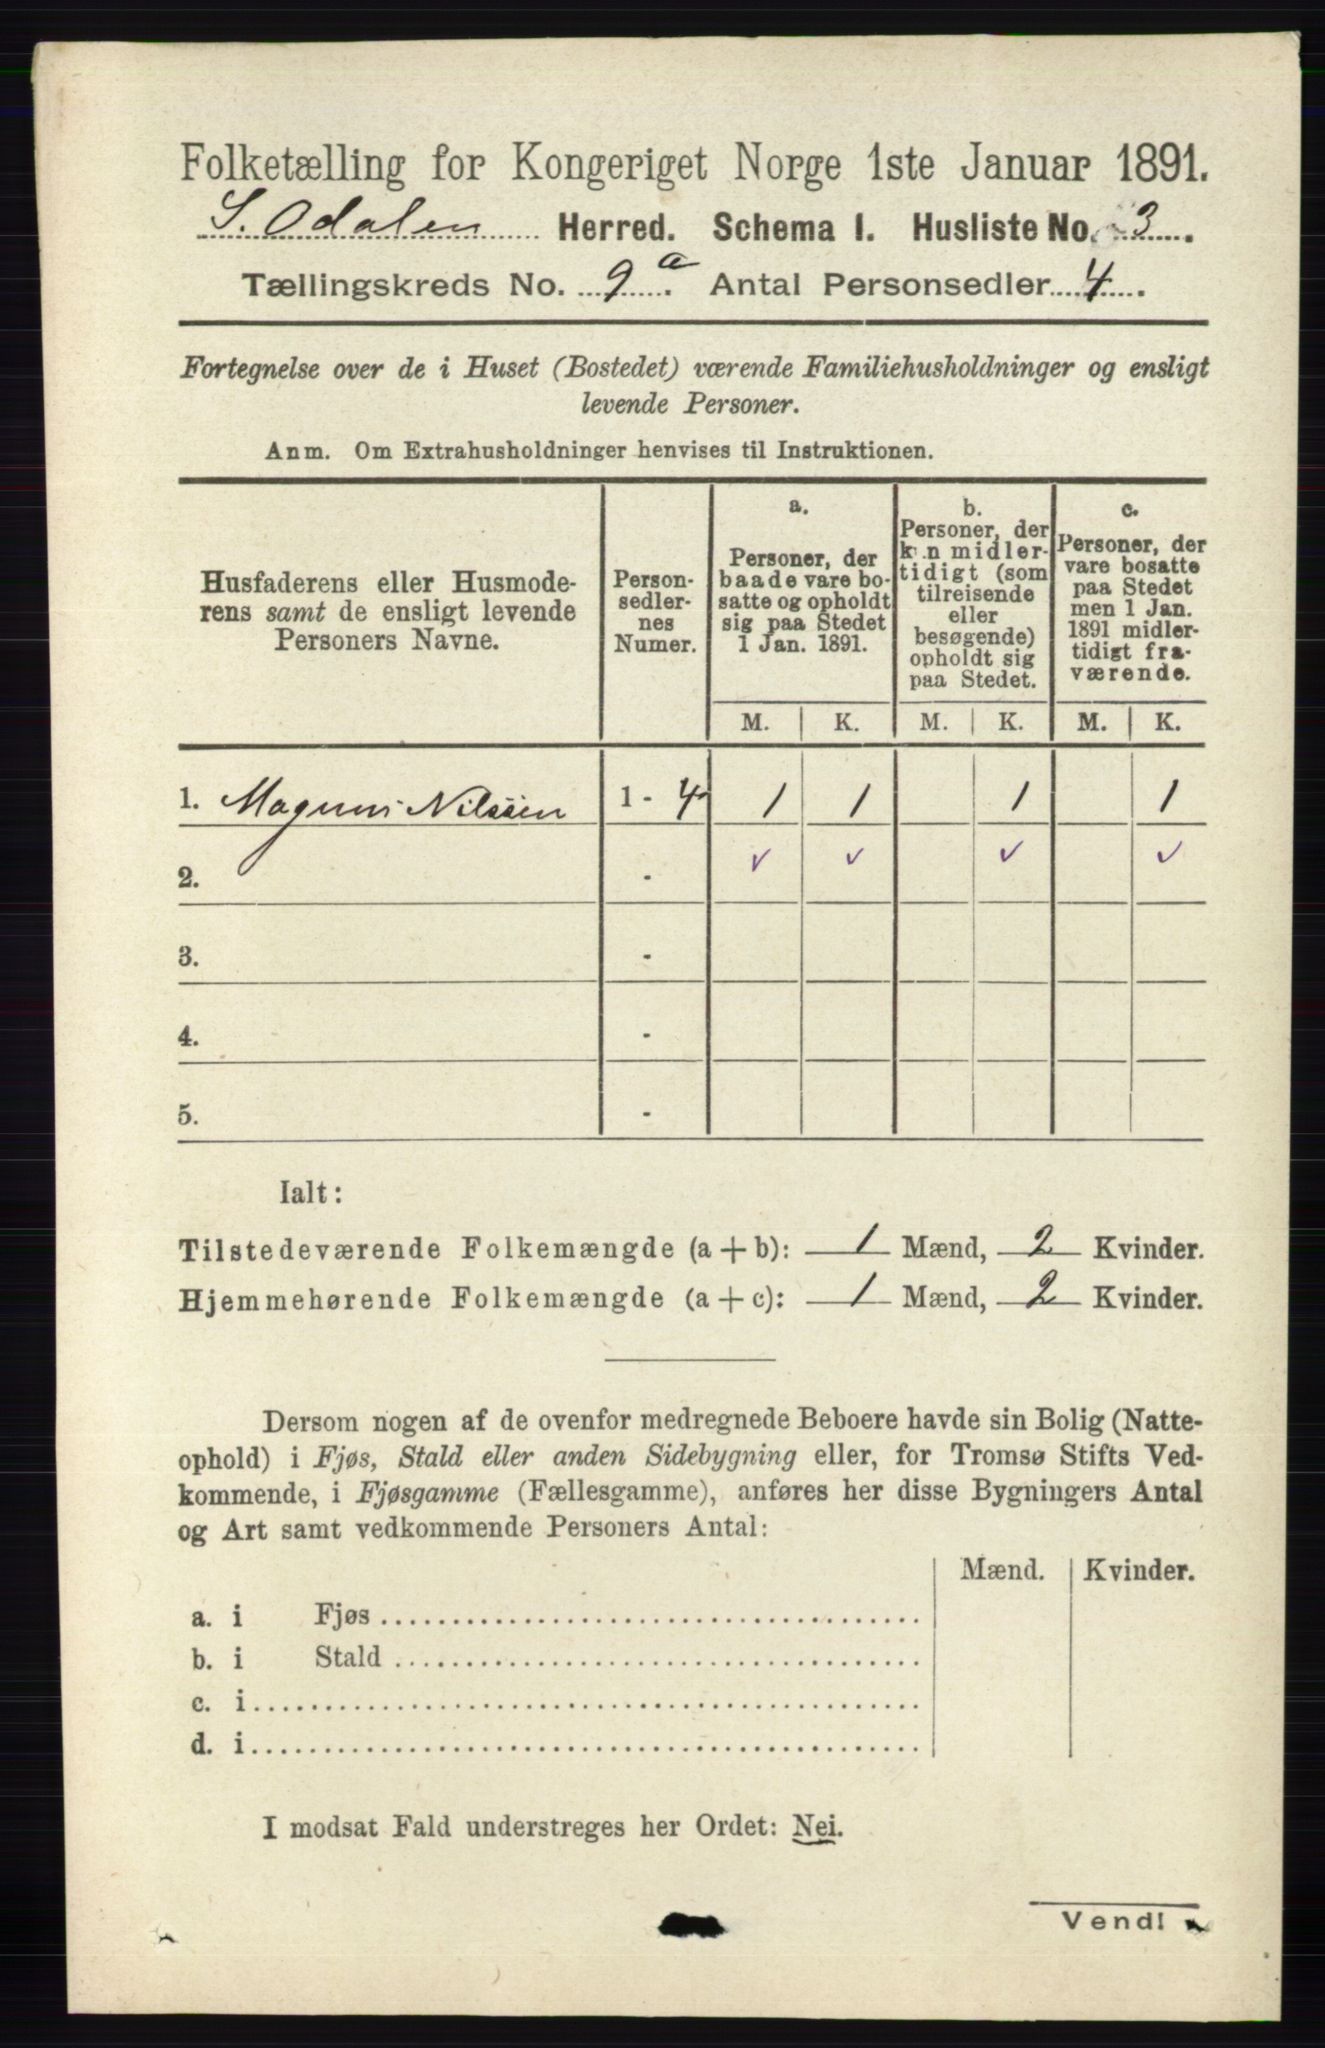 Folketælling for Kongeriget Norge 1ste Januar 1891.
S. Odalen Herred. Schema I. Husliste No. 3.
Tællingskreds No. 9a. Antal Personsedler 4.
Fortegnelse over de i Huset (Bostedet) værende Familiehusholdninger og ensligt
levende Personer.
Anm. Om Extrahusholdninger henvises til Instruktionen.
Husfaderens eller Husmode-
rens samt de ensligt levende
Personers Navne.
Person-
sedler-
nes
Numer.
a.
Personer, der
baade vare bo-
satte og opholdt
sig paa Stedet
1 Jan. 1891.
b.
Personer, der
kun midler-
tidigt (som
tilreisende
eller
besøgende)
opholdt sig
paa Stedet.
c.
Personer, der
vare bosatte
paa Stedet
men 1 Jan.
1891 midler-
tidigt fra-
værende.
M. K. M. K. M. K.
1. Magnus Nilssen 1 - 4 1 1 1 1
2. - ✓ ✓ ✓ ✓
3. -
4. -
5. -
Ialt:
Tilstedeværende Folkemængde (a + b): 1 Mænd, 2 Kvinder.
Hjemmehørende Folkemængde (a + c): 1 Mænd, 2 Kvinder.
Dersom nogen af de ovenfor medregnede Beboere havde sin Bolig (Natte-
ophold) i Fjøs, Stald eller anden Sidebygning eller, for Tromsø Stifts Ved-
kommende, i Fjøsgamme (Fællesgamme), anføres her disse Bygningers Antal
og Art samt vedkommende Personers Antal:
Mænd. Kvinder.
a. i Fjøs
b. i Stald
c. i
d. i
I modsat Fald understreges her Ordet: Nei.
Vend!